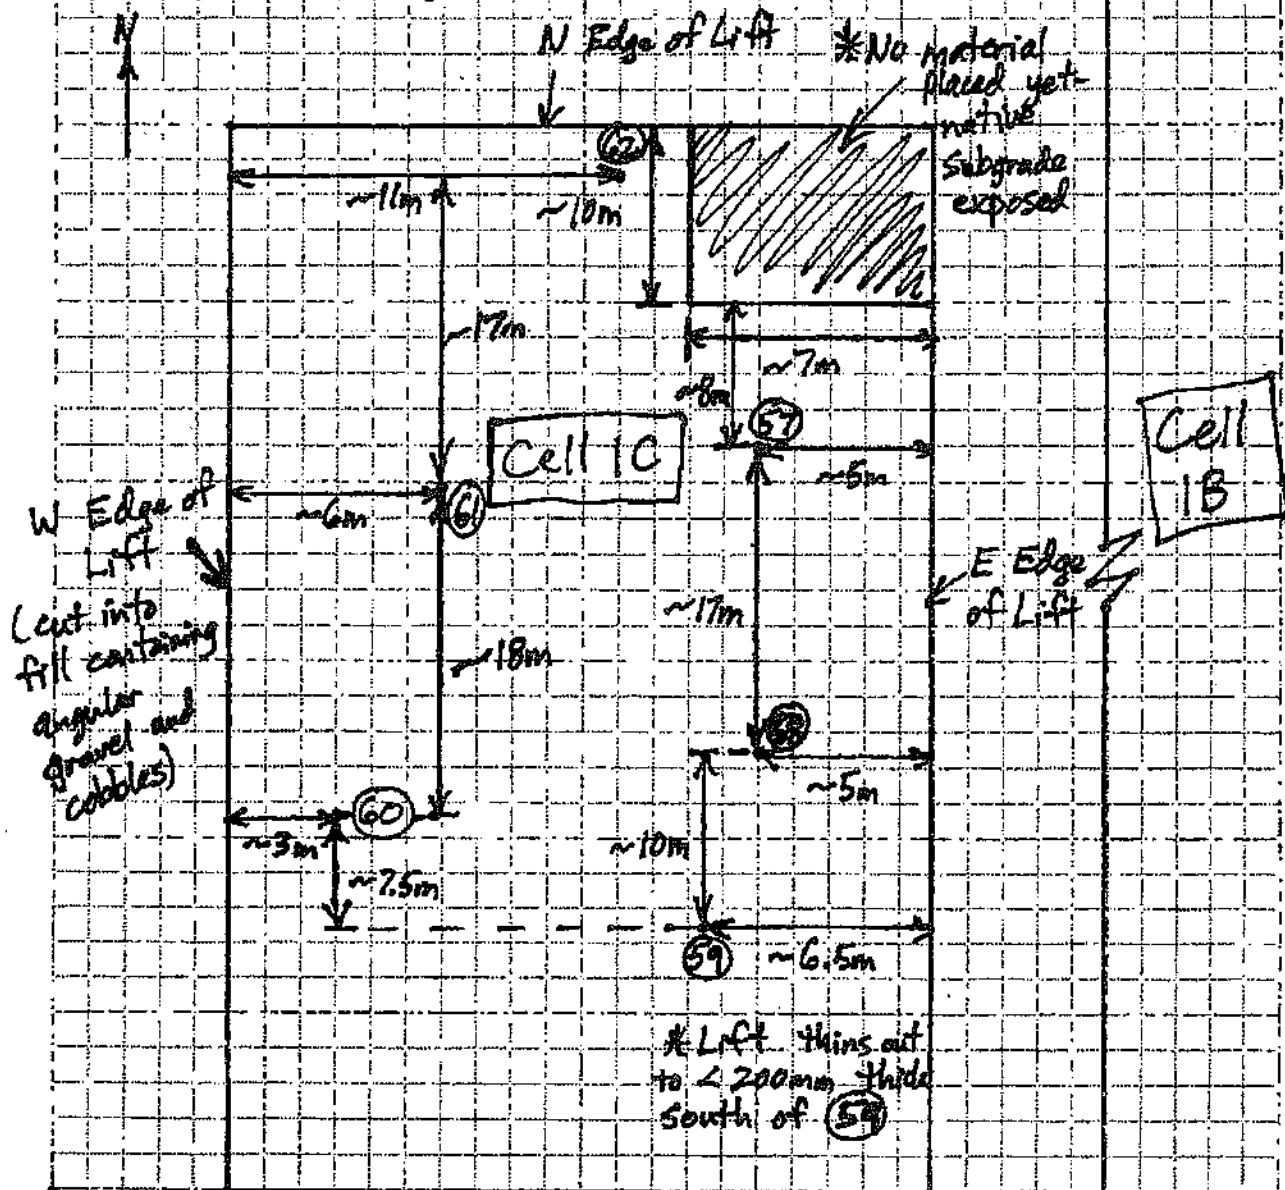 N
N Edge of Lift
*No material
placed yet-
native
subgrade
exposed
62
~11m
~10m
~17m
~7m
~8m
57
Cell 1C
~5m
Cell
1B
~6m
61
W Edge of
Lift
(cut into
fill containing
angular
gravel and
cobbles)
E Edge
of Lift
~17m
~18m
~5m
60
~3m
~10m
~7.5m
59
~6.5m
*Lift thins out
to < 200mm thick
south of 59